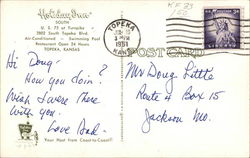 Holiday Inn
SOUTH
U. S. 75 at Turnpike
3802 South Topeka Blvd.
Air-Conditioned — Swimming Pool
Restaurant Open 24 Hours
TOPEKA, KANSAS
Hi Doug
How you doin?
Wish I were there
with you.
Love Dad -
Your Host from Coast-to-Coast
TOPEKA
1961
KANS
POSTCARD
Mr Doug Little
Route 4 Box 15
Jackson Mo.